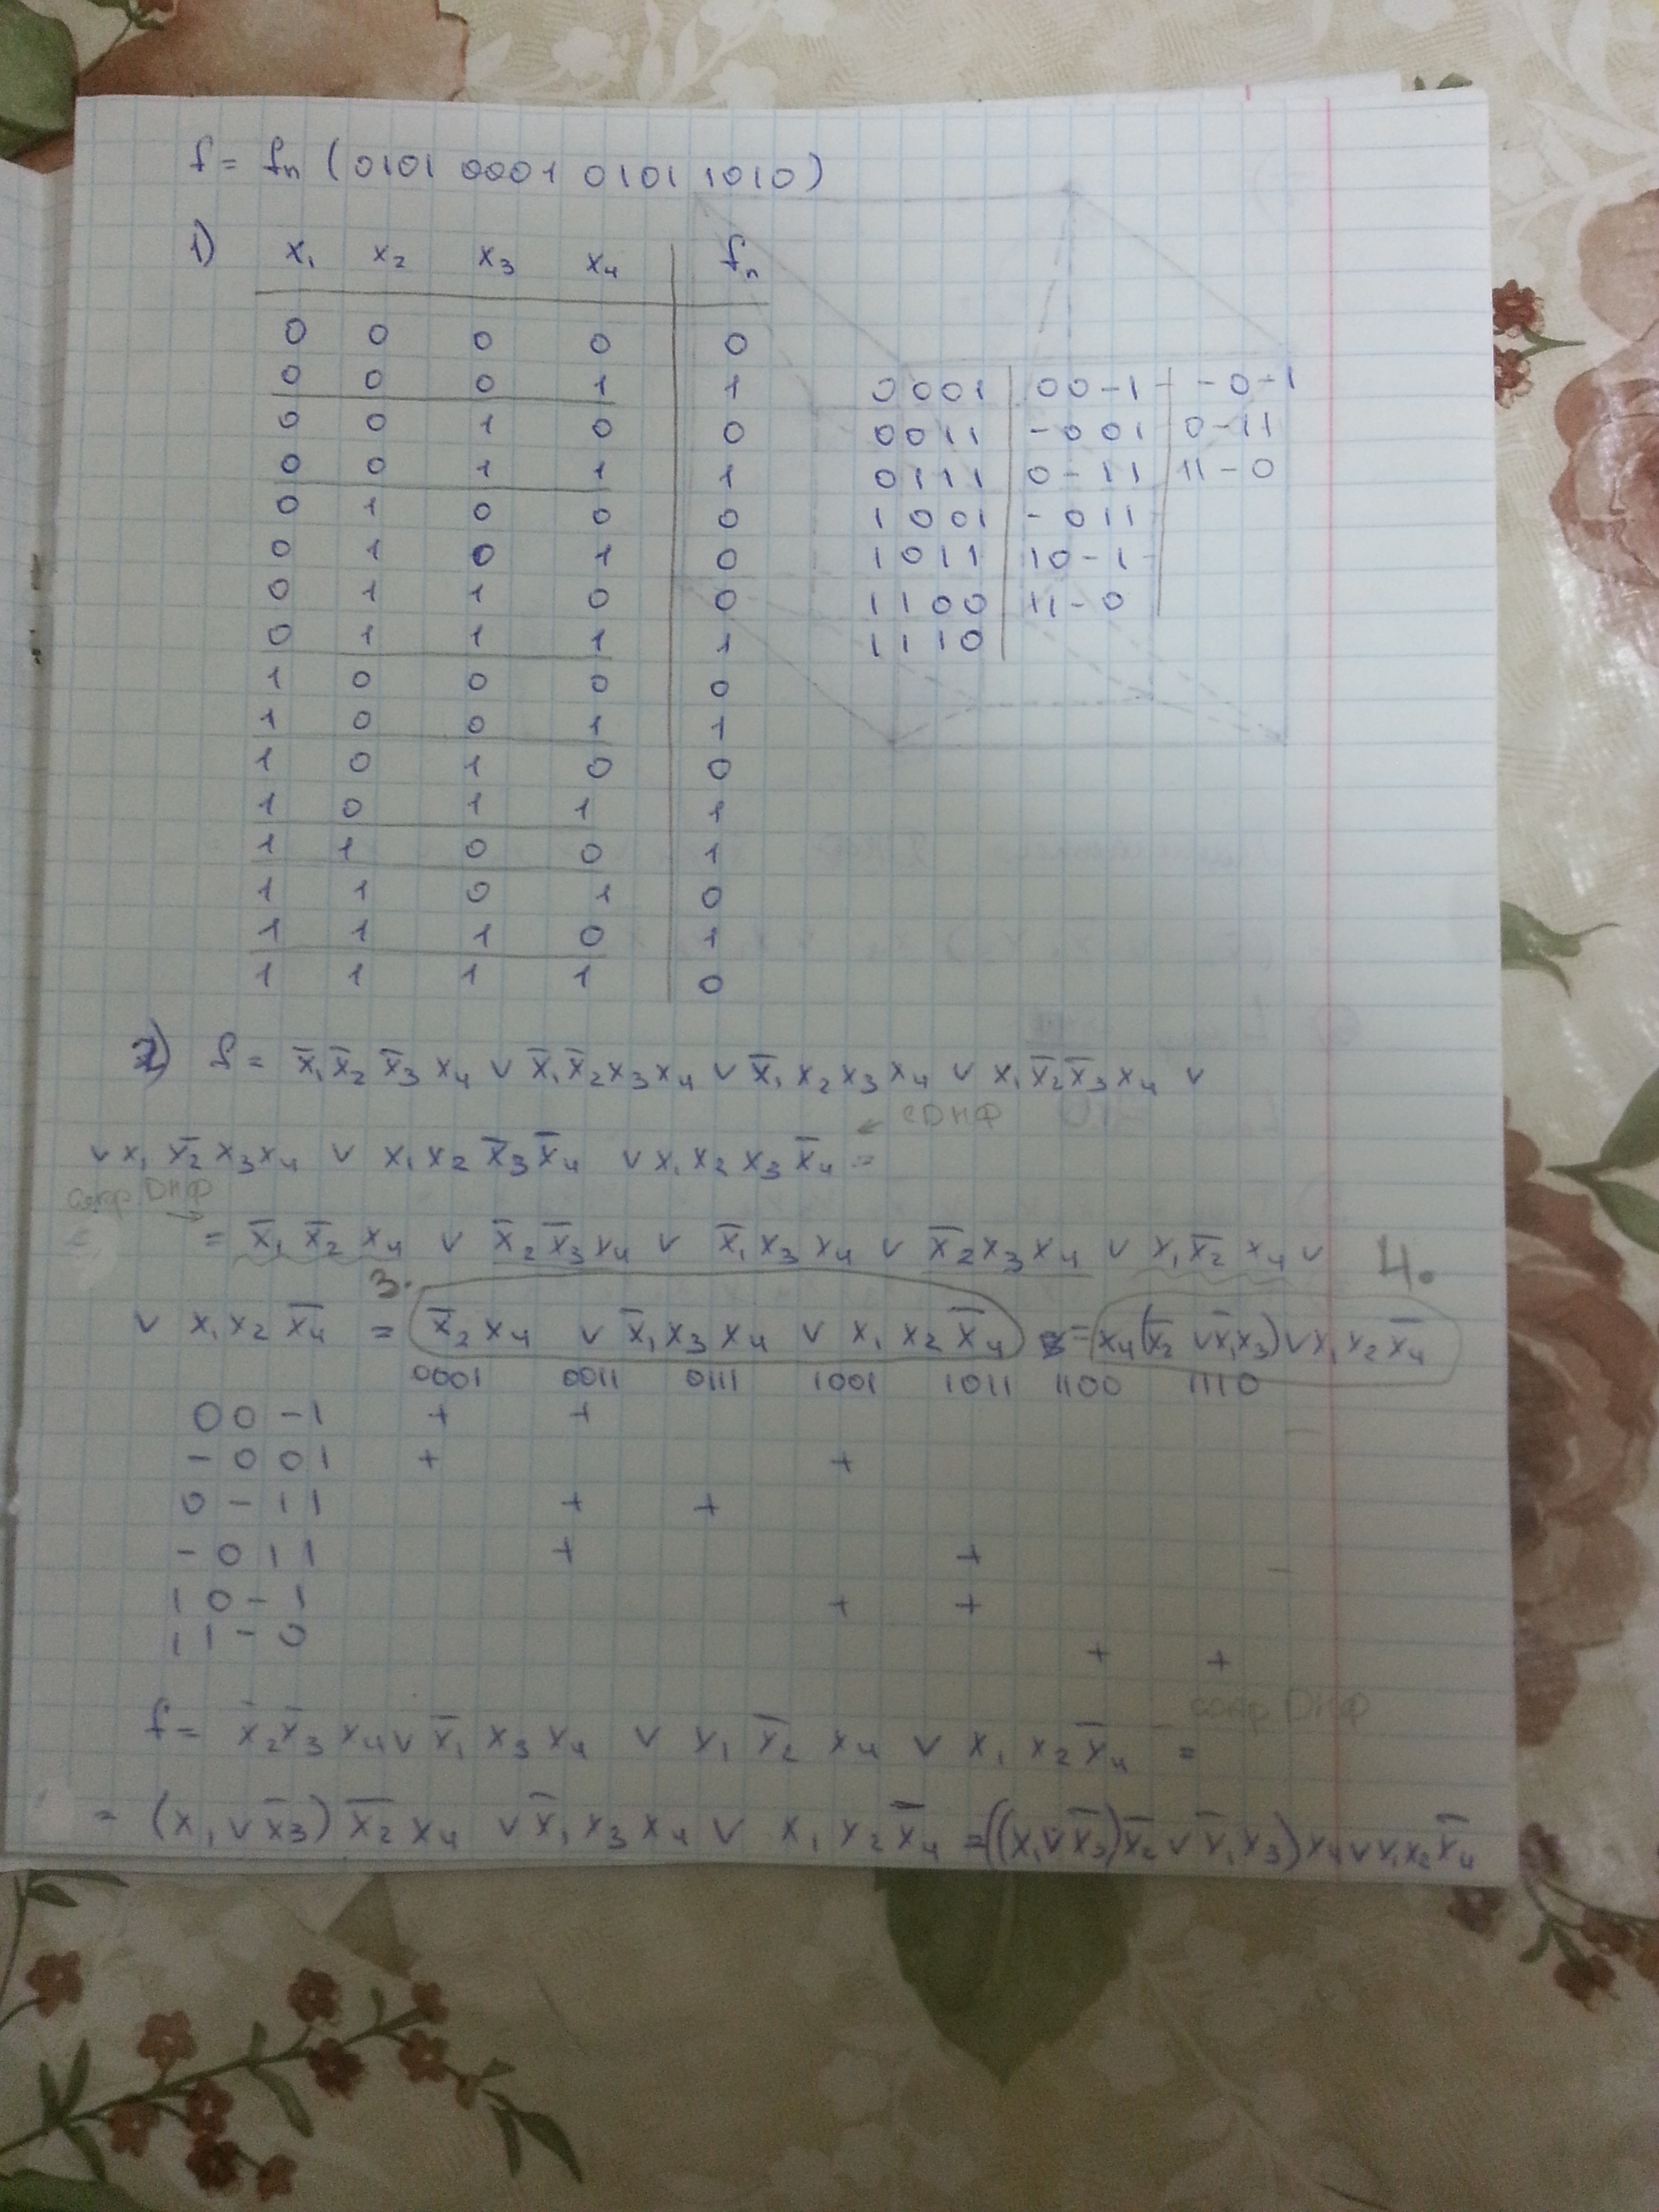 f = fₙ (0101 0001 0101 1010)
1) x₁ x₂ x₃ x₄ fₙ
0 0 0 0 0
0 0 0 1 1
0 0 1 0 0
0 0 1 1 1
0 1 0 0 0
0 1 0 1 0
0 1 1 0 0
0 1 1 1 1
1 0 0 0 0
1 0 0 1 1
1 0 1 0 0
1 0 1 1 1
1 1 0 0 1
1 1 0 1 0
1 1 1 0 1
1 1 1 1 0
0001 00-1 -0-1
0011 -001 0-11
0111 0-11 11-0
1001 -011
1011 10-1
1100 11-0
1110
2) f = x̅₁x̅₂x̅₃x₄ ∨ x̅₁x̅₂x₃x₄ ∨ x̅₁x₂x₃x₄ ∨ x₁x̅₂x̅₃x₄ ∨
← СДНФ
∨ x₁x̅₂x₃x₄ ∨ x₁x₂x̅₃x̅₄ ∨ x₁x₂x₃x̅₄ =
сокр ДНФ →
= x̅₁x̅₂x₄ ∨ x̅₂x̅₃x₄ ∨ x̅₁x₃x₄ ∨ x̅₂x₃x₄ ∨ x₁x̅₂x₄ ∨ 4.
3.
∨ x₁x₂x̅₄ = x̅₂x₄ ∨ x̅₁x₃x₄ ∨ x₁x₂x̅₄ = x₄(x̅₂ ∨ x̅₁x₃) ∨ x₁x₂x̅₄
0001 0011 0111 1001 1011 1100 1110
00-1 + +
-001 + +
0-11 + +
-011 + +
10-1 + +
11-0 + +
сокр ДНФ
f = x̅₂x̅₃x₄ ∨ x̅₁x₃x₄ ∨ x₁x̅₂x₄ ∨ x₁x₂x̅₄ =
= (x₁ ∨ x̅₃)x̅₂x₄ ∨ x̅₁x₃x₄ ∨ x₁x₂x̅₄ = ((x₁ ∨ x̅₃)x̅₂ ∨ x̅₁x₃)x₄ ∨ x₁x₂x̅₄